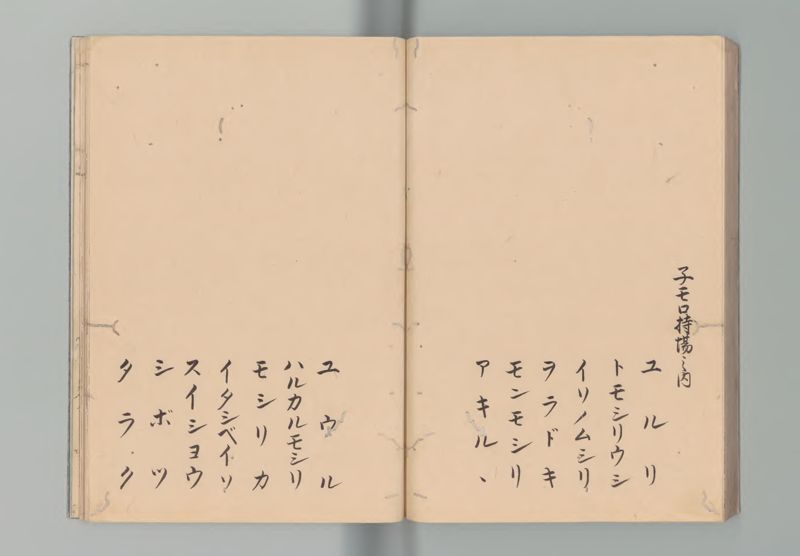 子モロ持場之内
ユルリ
トモシリウシ
イリノムシリ
ヲラドキ
モンモシリ
アキルヽ
ユウル
ハルカルモシリ
モシリカ
イタシベイソ
スイショウ
シボツ
タラク